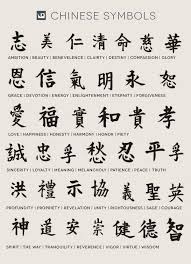 CHINESE SYMBOLS
志 美 仁 清 命 慈 華
AMBITION | BEAUTY | BENEVOLENCE | CLARITY | DESTINY | COMPASSION | GLORY
恩 信 氣 明 永 恕
GRACE | DEVOTION | ENERGY | ENLIGHTENMENT | ETERNITY | FORGIVENESS
愛 福 實 和 貴 孝
LOVE | HAPPINESS | HONESTY | HARMONY | HONOR | PIETY
誠 忠 孚 愁 忍 平 孚
SINCERITY | LOYALTY | MEANING | MELANCHOLY | PATIENCE | PEACE | TRUST
洪 禮 示 協 義 聖 英
PROFUNDITY | PROPRIETY | REVELATION | UNITY | RIGHTEOUSNESS | SAGE | COURAGE
神 道 安 崇 健 德 智
SPIRIT | THE WAY | TRANQUILITY | REVERENCE | VIGOR | VIRTUE | WISDOM